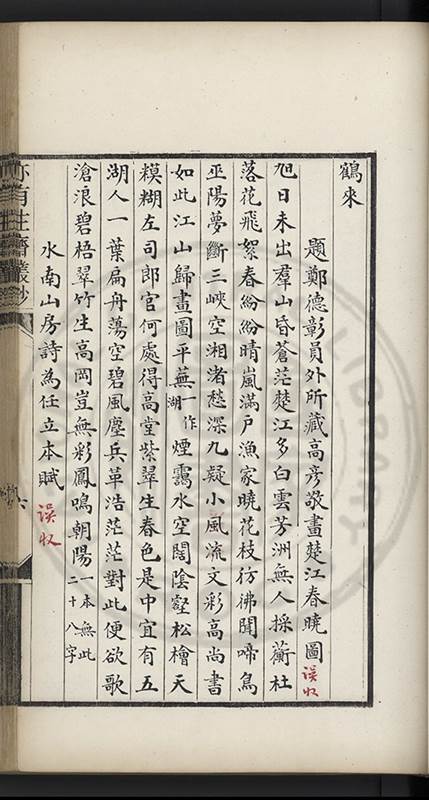 鶴來
題鄭德彰員外所藏高彥敬畫楚江春曉圖
誤收
旭日未出羣山昏蒼茫楚江多白雲芳洲無人採蘅杜
落花飛絮春紛紛晴嵐滿戶漁家曉花枝彷彿聞啼鳥
巫陽夢斷三峽空湘渚愁深九疑小風流文彩高尚書
如此江山歸畫圖平蕪一作湖煙靄水空闊陰壑松檜天
糢糊左司郎官何處得高堂紫翠生春色是中宜有五
湖人一葉扁舟蕩空碧風塵兵革浩茫茫對此便欲歌
滄浪碧梧翠竹生高岡豈無彩鳳鳴朝陽一本無此二十八字
水南山房詩為任立本賦
誤收
亦有生齋叢鈔